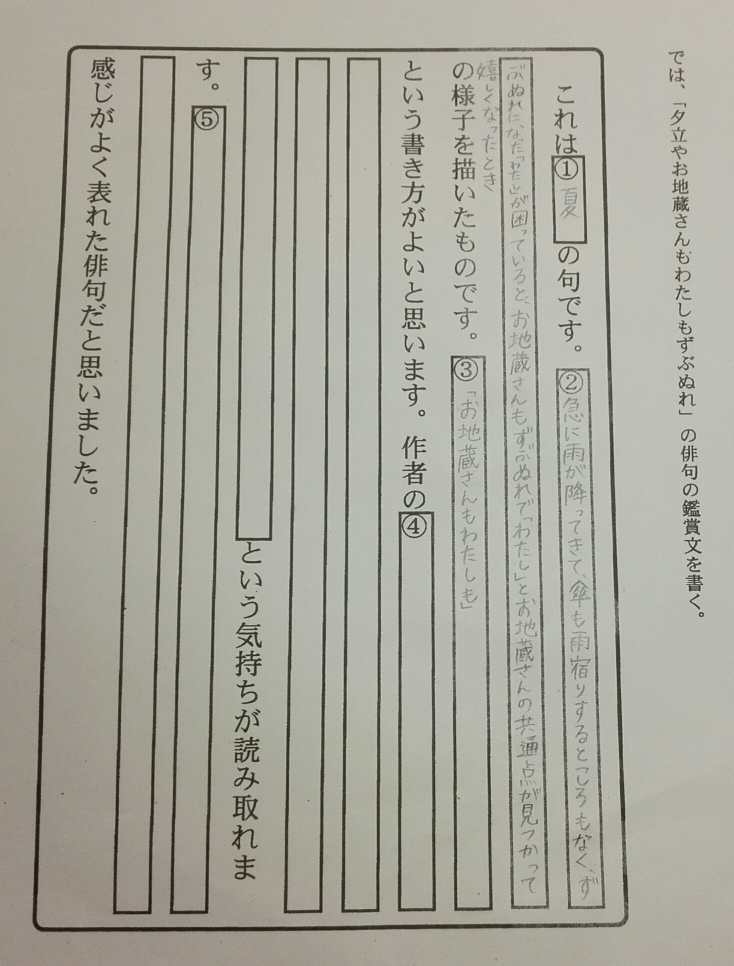 では、「夕立やお地蔵さんもわたしもずぶぬれ」の俳句の鑑賞文を書く。
これは①夏の句です。②急に雨が降ってきて、傘も雨宿りするところもなく、ず
ぶぬれになった「わたし」が困っていると、お地蔵さんもずぶぬれで「わたし」とお地蔵さんの共通点が見つかって
嬉しくなったとき
の様子を描いたものです。③「お地蔵さんもわたしも」
という書き方がよいと思います。作者の④
という気持ちが読み取れま
す。⑤
感じがよく表れた俳句だと思いました。